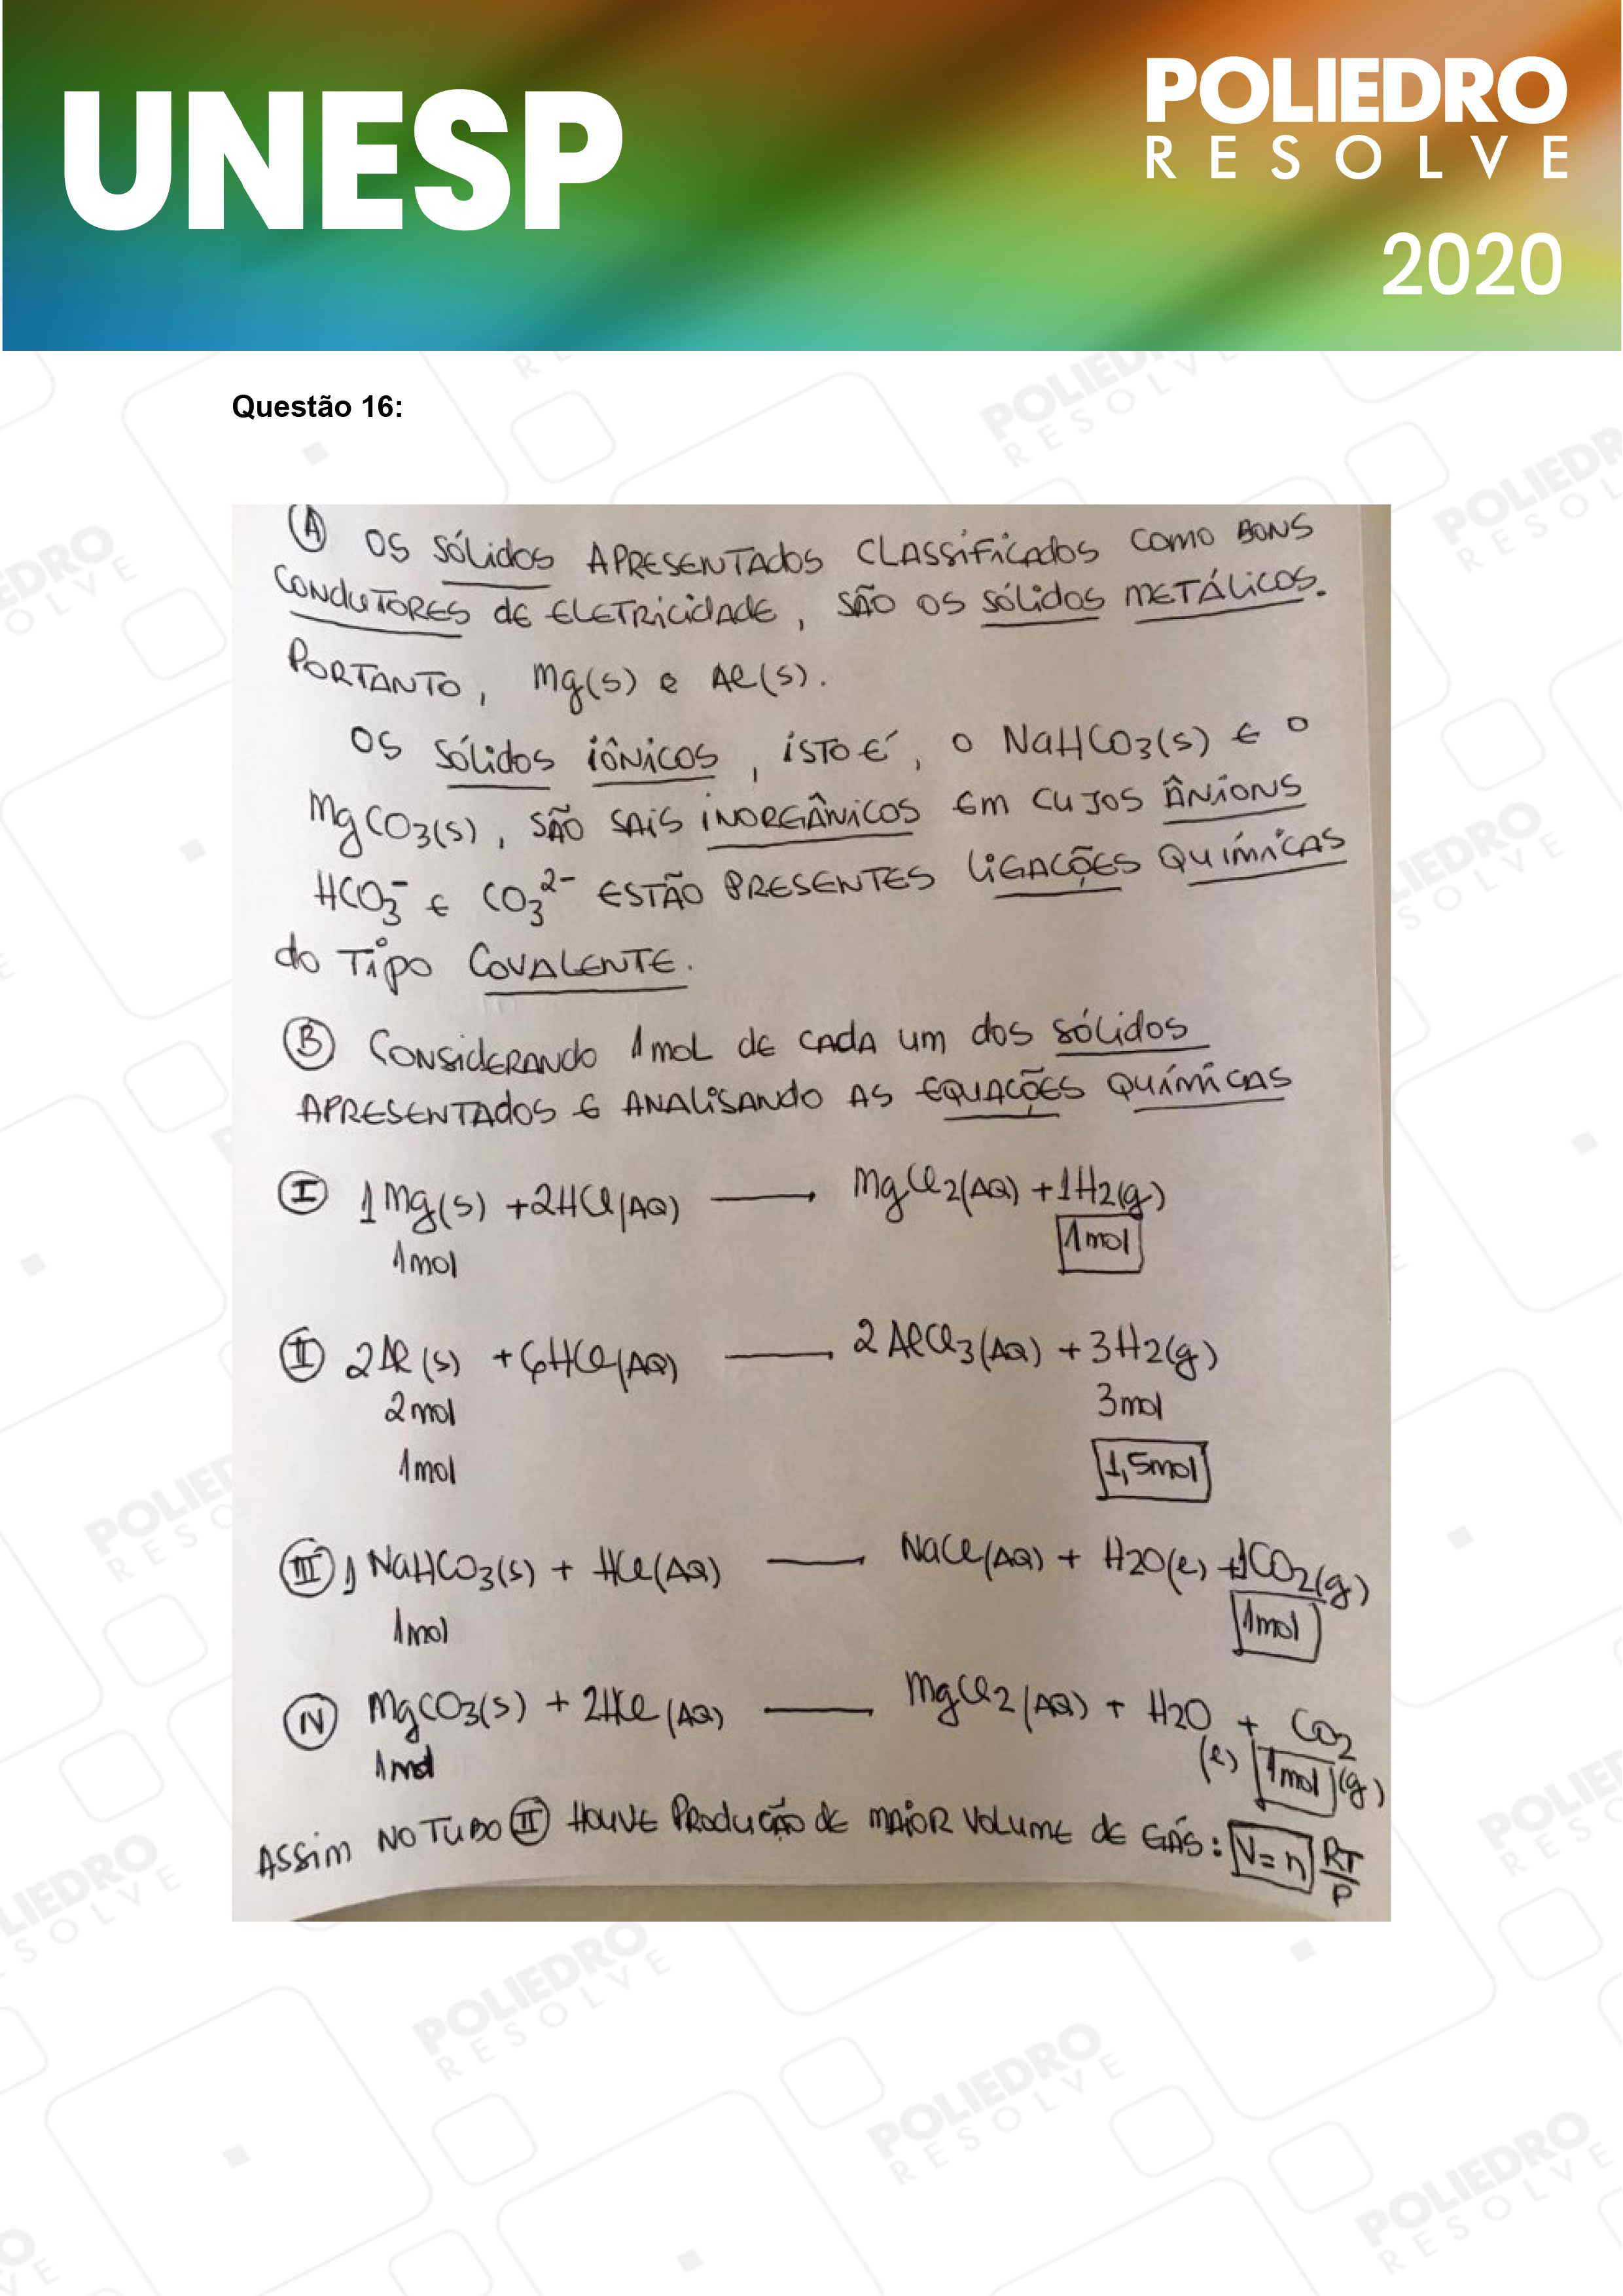 UNESP
POLIEDRO
RESOLVE
2020
Questão 16:
Ⓐ OS SÓLIDOS APRESENTADOS CLASSIFICADOS COMO BONS
CONDUTORES DE ELETRICIDADE, SÃO OS SÓLIDOS METÁLICOS.
PORTANTO, Mg(s) e Al(s).
OS SÓLIDOS IÔNICOS, ISTO É, O NaHCO3(s) E O
MgCO3(s), SÃO SAIS INORGÂNICOS EM CUJOS ÂNIONS
HCO3⁻ E CO3²⁻ ESTÃO PRESENTES LIGAÇÕES QUÍMICAS
do TIPO COVALENTE.
Ⓑ CONSIDERANDO 1mol DE CADA UM DOS SÓLIDOS
APRESENTADOS E ANALISANDO AS EQUAÇÕES QUÍMICAS
Ⓘ 1Mg(s) + 2HCl(AQ) ⟶ MgCl2(AQ) + 1H2(g)
1mol 1mol
II 2Al(s) + 6HCl(AQ) ⟶ 2AlCl3(AQ) + 3H2(g)
2mol 3mol
1mol 1,5mol
III 1NaHCO3(s) + HCl(AQ) ⟶ NaCl(AQ) + H2O(l) + 1CO2(g)
1mol 1mol
IV MgCO3(s) + 2HCl(AQ) ⟶ MgCl2(AQ) + H2O(l) + CO2(g)
1mol 1mol
ASSIM NO TUBO II HOUVE PRODUÇÃO DE MAIOR VOLUME DE GÁS: V = n RT/P